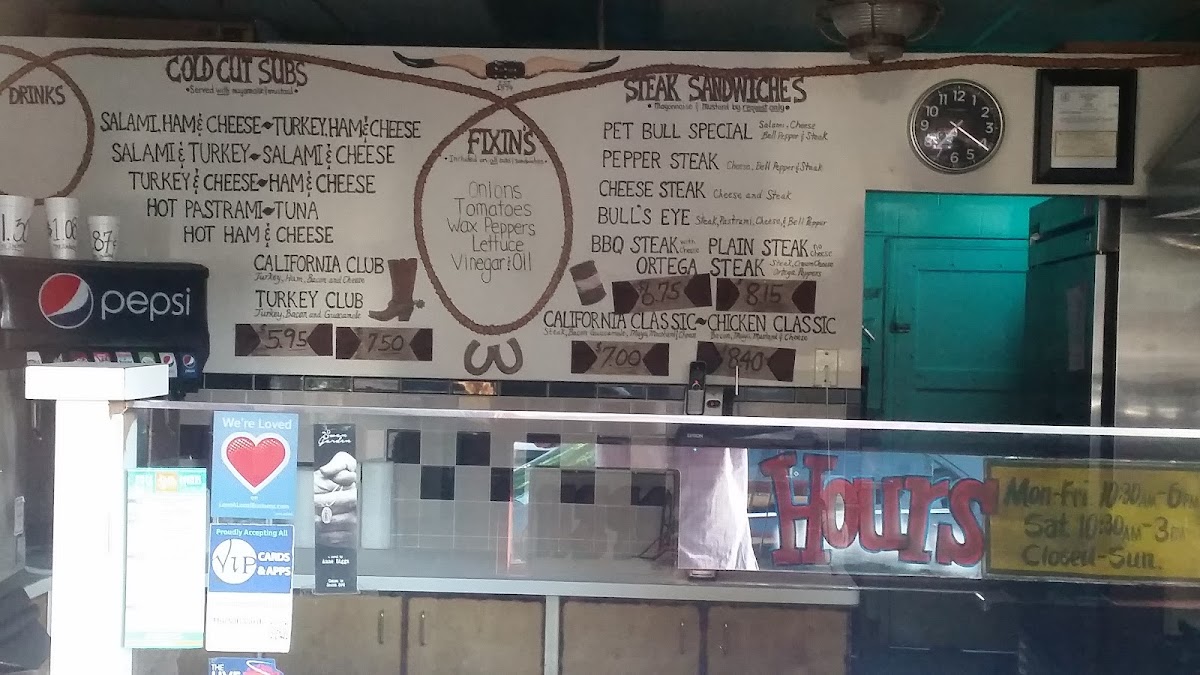 DRINKS
COLD CUT SUBS
• Served with mayonnaise & mustard •
SALAMI, HAM & CHEESE TURKEY, HAM & CHEESE
SALAMI & TURKEY SALAMI & CHEESE
TURKEY & CHEESE HAM & CHEESE
HOT PASTRAMI TUNA
HOT HAM & CHEESE
CALIFORNIA CLUB
Turkey, Ham, Bacon and Cheese
TURKEY CLUB
Turkey, Bacon and Guacamole
$5.95 $7.50
FIXIN'S
• Included on all subs & sandwiches •
Onions
Tomatoes
Wax Peppers
Lettuce
Vinegar & Oil
STEAK SANDWICHES
• Mayonnaise & Mustard by request only •
PET BULL SPECIAL Salami, Cheese
Bell Pepper & Steak
PEPPER STEAK Cheese, Bell Pepper & Steak
CHEESE STEAK Cheese and Steak
BULL'S EYE Steak, Pastrami, Cheese, & Bell Pepper
BBQ STEAK with Cheese PLAIN STEAK no Cheese
ORTEGA STEAK Steak, Cream Cheese
Ortega Peppers
$6.75 $8.15
CALIFORNIA CLASSIC CHICKEN CLASSIC
Steak, Bacon, Guacamole, Mayo, Mustard & Cheese Bacon, Mayo, Mustard & Cheese
$7.00 $8.40
12 1 2 3 4 5 6 7 8 9 10 11
1.30 $1.08 87¢
pepsi
We're Loved
Proudly Accepting All
ViP CARDS
& APPS
EPSON
Hours
Mon-Fri 10:30AM-6
Sat. 10:30AM-3
Closed-Sun.
THE